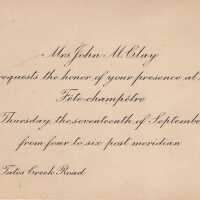 Mrs John M. Clay
requests the honor of your presence at
Fête-champêtre
Thursday, the seventeenth of September
from four to six post meridian
Tates Creek Road